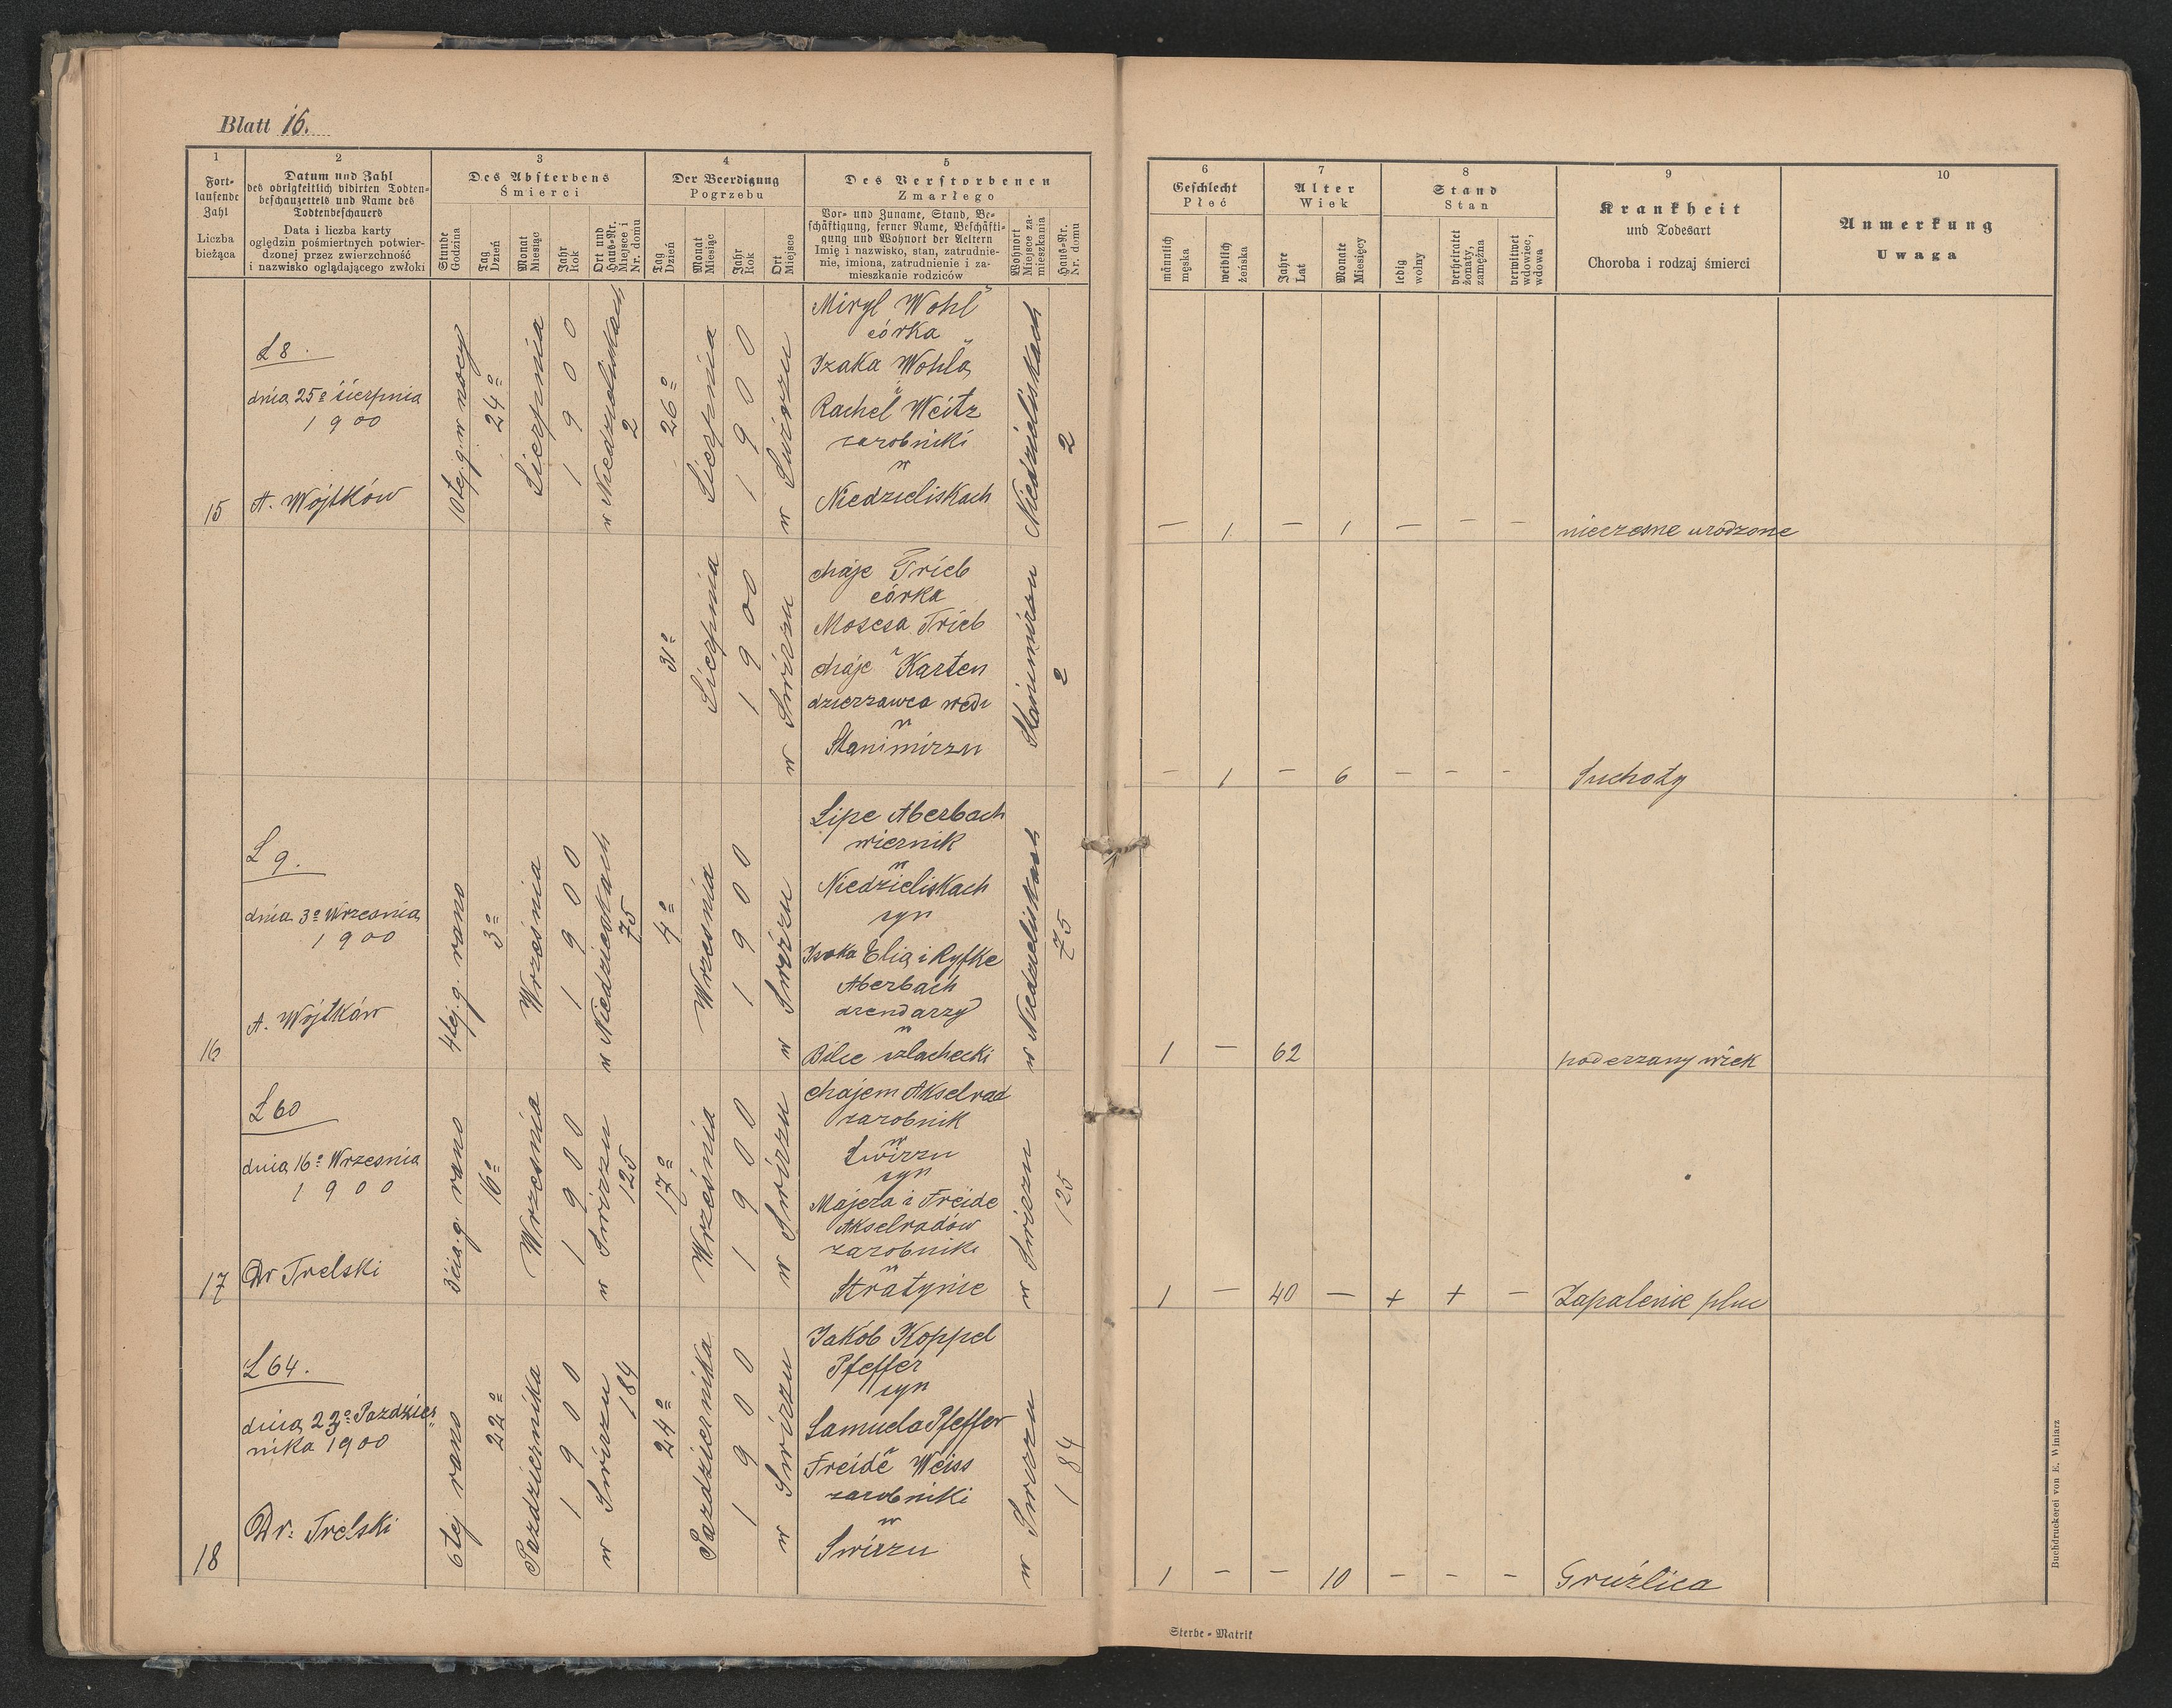 Blatt 16.
1
2
3
4
5
6
7
8
9
10
Fort-
laufende
Zahl
Liczba
bieżąca
Datum und Zahl
des obrigkeitlich vidirten Todten-
beschauzettels und Name des
Todtenbeschauers
Data i liczba karty
oględzin pośmiertnych potwier-
dzonej przez zwierzchność
i nazwisko oglądającego zwłoki
Des Absterbens
Śmierci
Stunde
Godzina
Tag
Dzień
Monat
Miesiąc
Jahr
Rok
Ort und
Haus-Nr.
Miejsce i
Nr. domu
Der Beerdigung
Pogrzebu
Tag
Dzień
Monat
Miesiąc
Jahr
Rok
Ort
Miejsce
Des Verstorbenen
Zmarłego
Vor- und Zuname, Stand, Be-
schäftigung, ferner Name, Beschäfti-
gung und Wohnort der Aeltern
Imię i nazwisko, stan, zatrudnie-
nie, imiona, zatrudnienie i za-
mieszkanie rodziców
Wohnort
Miejsce za-
mieszkania
Haus-Nr.
Nr. domu
Geschlecht
Płeć
männlich
męska
weiblich
żeńska
Alter
Wiek
Jahre
Lat
Monate
Miesięcy
Stand
Stan
ledig
wolny
verheiratet
żonaty,
zamężna
verwitwet
wdowiec,
wdowa
Krankheit
und Todesart
Choroba i rodzaj śmierci
Anmerkung
Uwaga
15
L 8.
dnia 25º sierpnia
1900
A. Wojtków
10tej g. w nocy
24º
Sierpnia
1900
w Niedzieliskach
2
26º
Sierpnia
1900
w Swirzu
Miryl Wohl
córka
Izaka Wohla
i
Rachel Weitz
zarobniki
w
Niedzieliskach
Niedzieliskach
2
— 1 — 1 — — —
nieczesne urodzone
31º
Sierpnia
1900
w Swirzu
Chaje Trieb
córka
Mosesa Trieb
i
Chaje Karten
dzierzawca
w
Stanimirzu
Stanimirzu
2
— 1 — 6 — — —
Suchoty
16
L 9.
dnia 3º Wrzesnia
1900
A. Wojtków
4tej. g. rano
3º
Września
1900
w Niedzieliskach
75
4º
Wrzesnia
1900
w Swirzu
Lipe Aberbach
wiernik
w
Niedzieliskach
syn
Izaka Elia i Ryfke
Aberbach
arendarzy
w
Bilce szlachecki
w Niedzieliskach
75
1 — 62
podeszany wiek
17
L 60
dnia 16º Wrzesnia
1900
Dr Trelski
3cia. g. rano
16º
Wrzesnia
1900
w Swirzu
125
17º
Września
1900
w Swirzu
Chajem Akselrad
zarobnik
w
Swirzu
syn
Majera i Freide
Akselradów
zarobniki
w
Stratynie
w Swirzu
125
1 — 40 — + + —
Zapalenie pluc
18
L 64.
dnia 23º Pazdzier
nika 1900
Dr: Trelski
6tej rano
22º
Pazdziernika
1900
w Swirzu
184
24º
Pazdziernika
1900
w Swirzu
Jakób Koppel
Pfeffer
syn
Samuela Pfeffer
i
Freide Weiss
zarobniki
w
Swirzu
w Swirzu
184
1 — — 10 — — —
Gruźlica
Sterbe-Matrik
Buchdruckerei von E. Winiarz